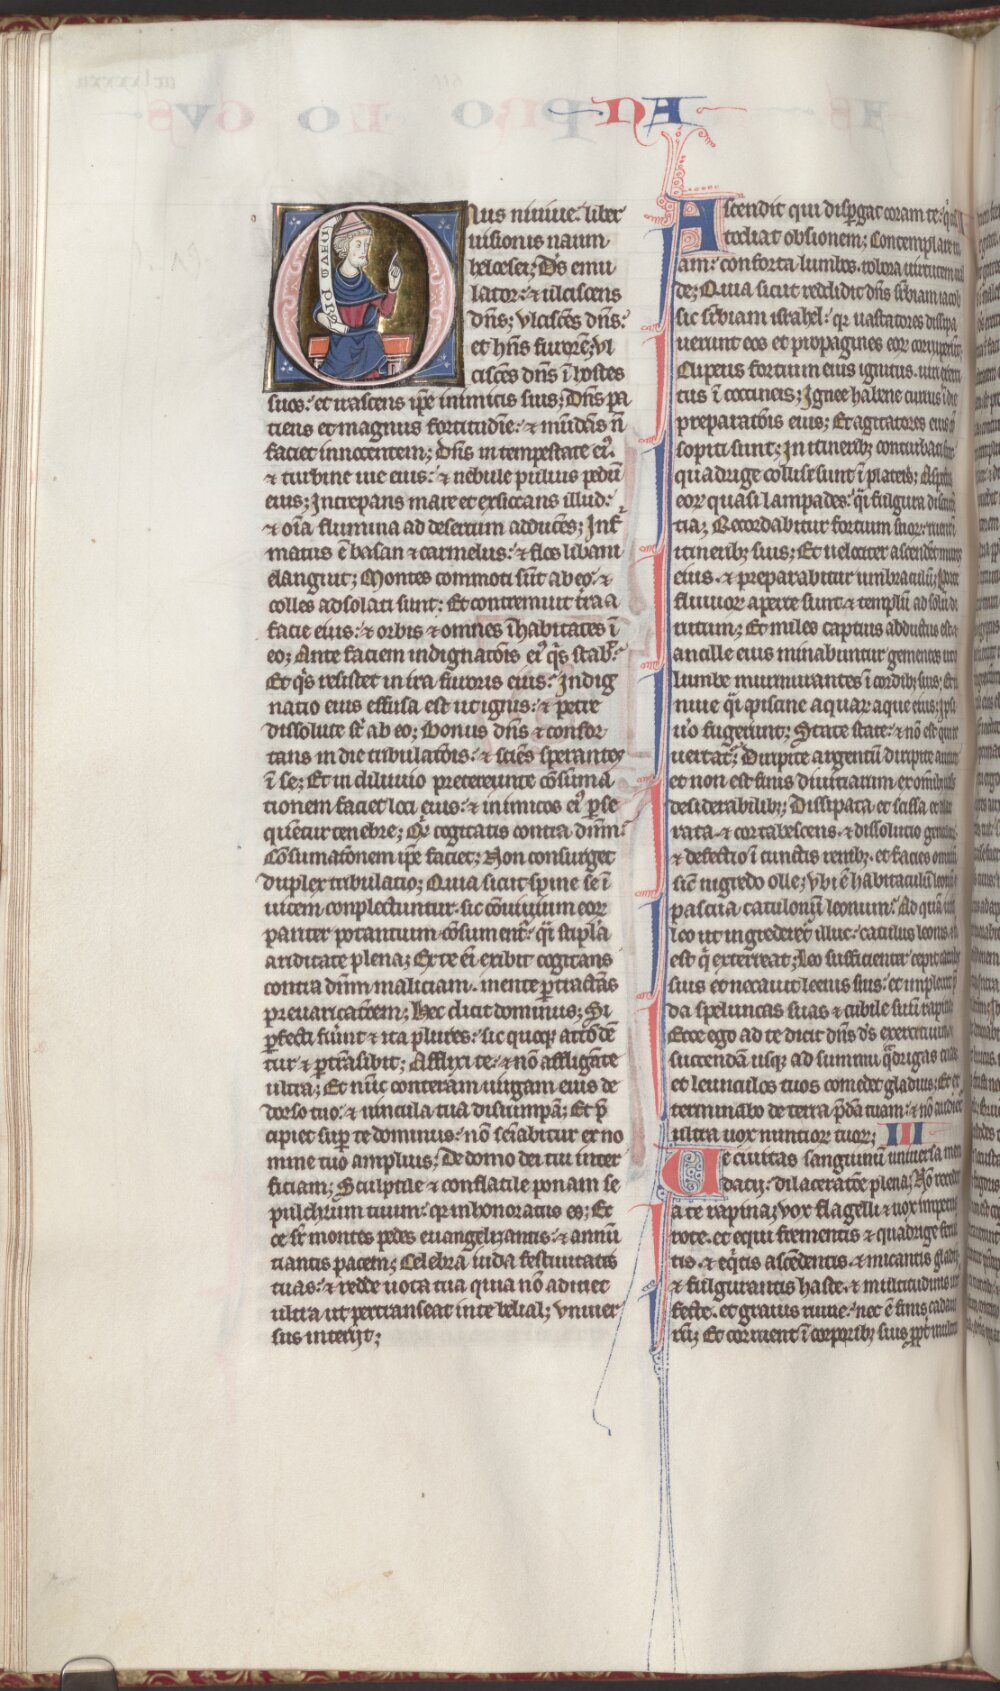 NA
Onus niniue: liber
uisionis naum
helcesei; Ds emu
lator: & ulciscens
dns; Vlcisces dns:
et hns furore; Vl
cisces dns i hostes
suos: et irascens ipe inimicis suis; Dns pa
tiens et magnus fortitudie: & mudas n
faciet innocentem; Dns in tempestate ei:
& turbine uie eius: & nebule puluis pedu
eius; Increpans mare et exsiccans illud:
& oia flumina ad desertum adduces; Infir
matus e basan & carmelus: & flos libani
elanguit; Montes commoti sut ab eo: &
colles adsolati sunt: Et contremuit tra a
facie eius: & orbis & omnes ihabitates i
eo; Ante faciem indignatois ei qis stab:
Et qis resistet in ira furoris eius: Indig
natio eius effusa est ut ignis: & petre
dissolute st ab eo; Bonus dns & confor
tans in die tribulatois: & scies sperantes
i se; Et in diluuio pretereunte cosuma
tionem faciet loci eius: & inimicos ei pse
quentur tenebre; Qd cogitatis contra dnm:
Cosumatonem ipe faciet; Non consurget
duplex tribulatio; Quia sicut spine se i
uicem conplectuntur. sic couiuium eor
pariter potantium. cosument: qi stipla
ariditate plena; Ex te ei exibit cogitans
contra dnm maliciam. mente ptractas
preuaricatoem; Hec dicit dominus; Si
pfecti fuint & ita plures: sic quoq; attode
tur & ptrasibit; Afflixi te: & no affligate
ultra; Et nuc conteram uirgam eius de
dorso tuo: & uincula tua disrumpa; Et p
cipiet sup te dominus: no seiabitur ex no
mine tuo amplius; De domo dei tui inter
ficiam; Sculptile & conflatile ponam se
pulchrum tuum: qr inhonoratus es; Ec
ce sr montes pedes euangelizantis: & annu
tiantis pacem; Celebra iuda festiuitates
tuas: & redde uota tua quia no adiciet
ultra ut pertranseat in te belial; Vniuer
sus interijt;
Ascendit qui dispgat coram te: q
todiat obsionem; Contemplare
am: conforta lumbos. robora uirtutem
de; Quia sicut reddidit dns supbiam iacob
sic supbiam israhel: qr uastatores dissipa
uerunt eos et propagines eor corruperunt
Clipeus fortium eius ignitus. uiri
tus i coccineis; Ignee habene currus i die
preparatois eius; Et agitatores eius
sopiti sunt; In itinerib; conturbati
quadrige collise sunt i plateis; Aspectus
eor quasi lampades: qi fulgura discur
tia; Recordabitur fortium suor. ruent i
itinerib; suis; Et uelociter ascendet muros
eius. & preparabitur umbraculu; Porte
fluuior aperte sunt. & templu ad solu di
rutum; Et miles captiuus abductus est.
ancille eius minabuntur gementes ut
lumbe murmurantes i cordib; suis; Et ni
niue qi piscine aquar. aque eius; Ipsi
uo fugerunt; State state: & no est qui re
uertat; Diripite argentu diripite aurum
et non est finis diuitiarum ex omnib;
desiderabilib;; Dissipata et scissa et
rata. & cor tabescens. & dissolutio
& defectio i cunctis renib;. et facies
sic nigredo olle; Vbi e habitaculu leonu
pascua catulonu leonum: Ad qua
leo ut ingrederet illuc. catulus leonis.
est q exterreat; Leo sufficienter cepit
suis et necauit leenis suis: et impleuit p
da speluncas suas & cubile suu rapina
Ecce ego ad te dicit dns ds exercituum.
succenda usq; ad fumu qdrigas
et leunculos tuos comedet gladius; Et ex
terminabo de terra pda tuam: & no audiet
ultra uox nuntior tuor; III
Ve ciuitas sanguinu uniuersa men
dacij: dilaceratoe plena; No
a te rapina; Vox flagelli & uox impetus
rote. et equi frementis & quadrige
tis. & eqitis ascedentis. & micantis gladij
& fulgurantis haste. & multitudinis
fecte. et grauis ruine: nec e finis cadaue
ru; Et corruent i corporib; suis ppt